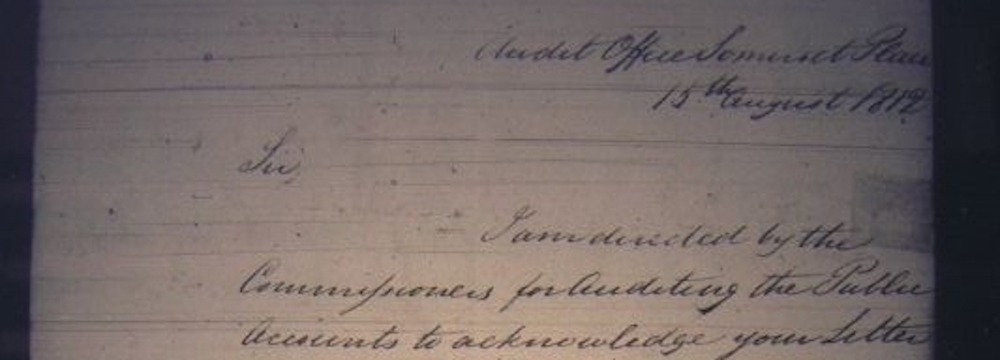 Audit Office Somerset Place
15th August 1812
Sir,
I am directed by the
Commissioners for Auditing the Public
Accounts to acknowledge your Letter